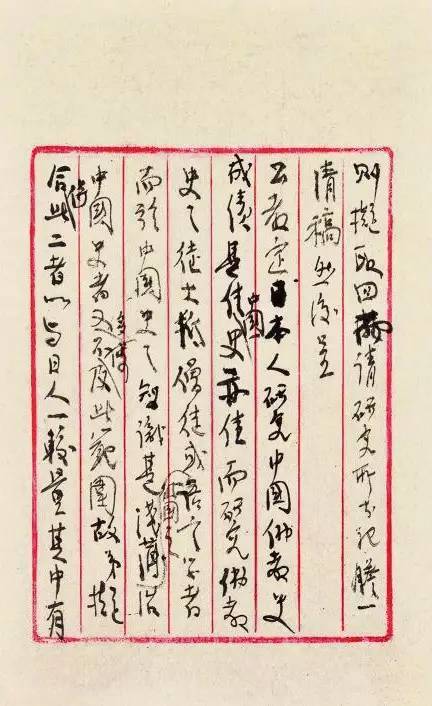 則擬取回請研究所書記謄一
清稿然後呈
公教定日本人研究中国佛教史
成績甚佳中國史亦佳而研究佛教
史之徒大抵僧徒或語言学者
而於中國史之智識甚淺薄治
中國史者又不及此範圍故弟擬
合此二者以与日人一較量其中有